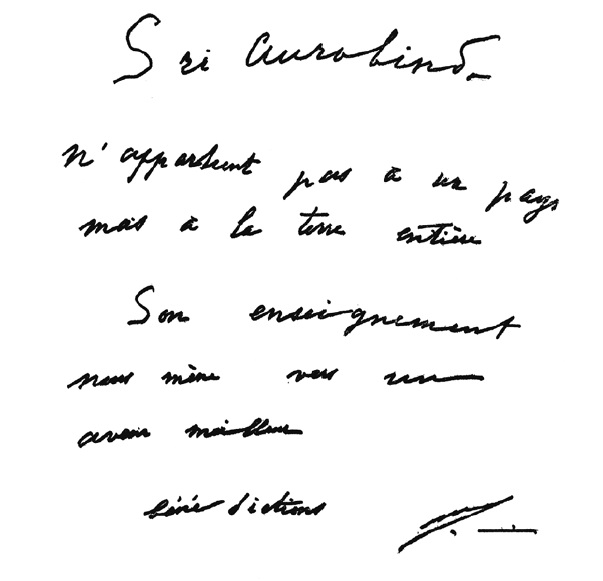 Sri Aurobindo
n'appartient pas à un pays
mais à la terre entière
Son enseignement
nous mène vers un
avenir meilleur
bénédictions